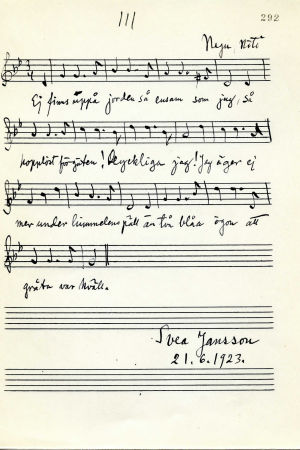 111
292
Nagu, Kiti
Ej finns uppå jorden så ensam som jag, så
hopplöst förgäten! Olyckliga jag! Jag äger ej
mer under himmelens päll än två blåa ögon att
gråta var kväll.
Svea Jansson
21.6.1923.